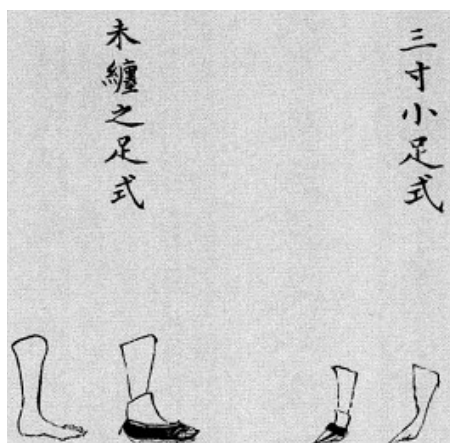 三寸小足式
未纏之足式